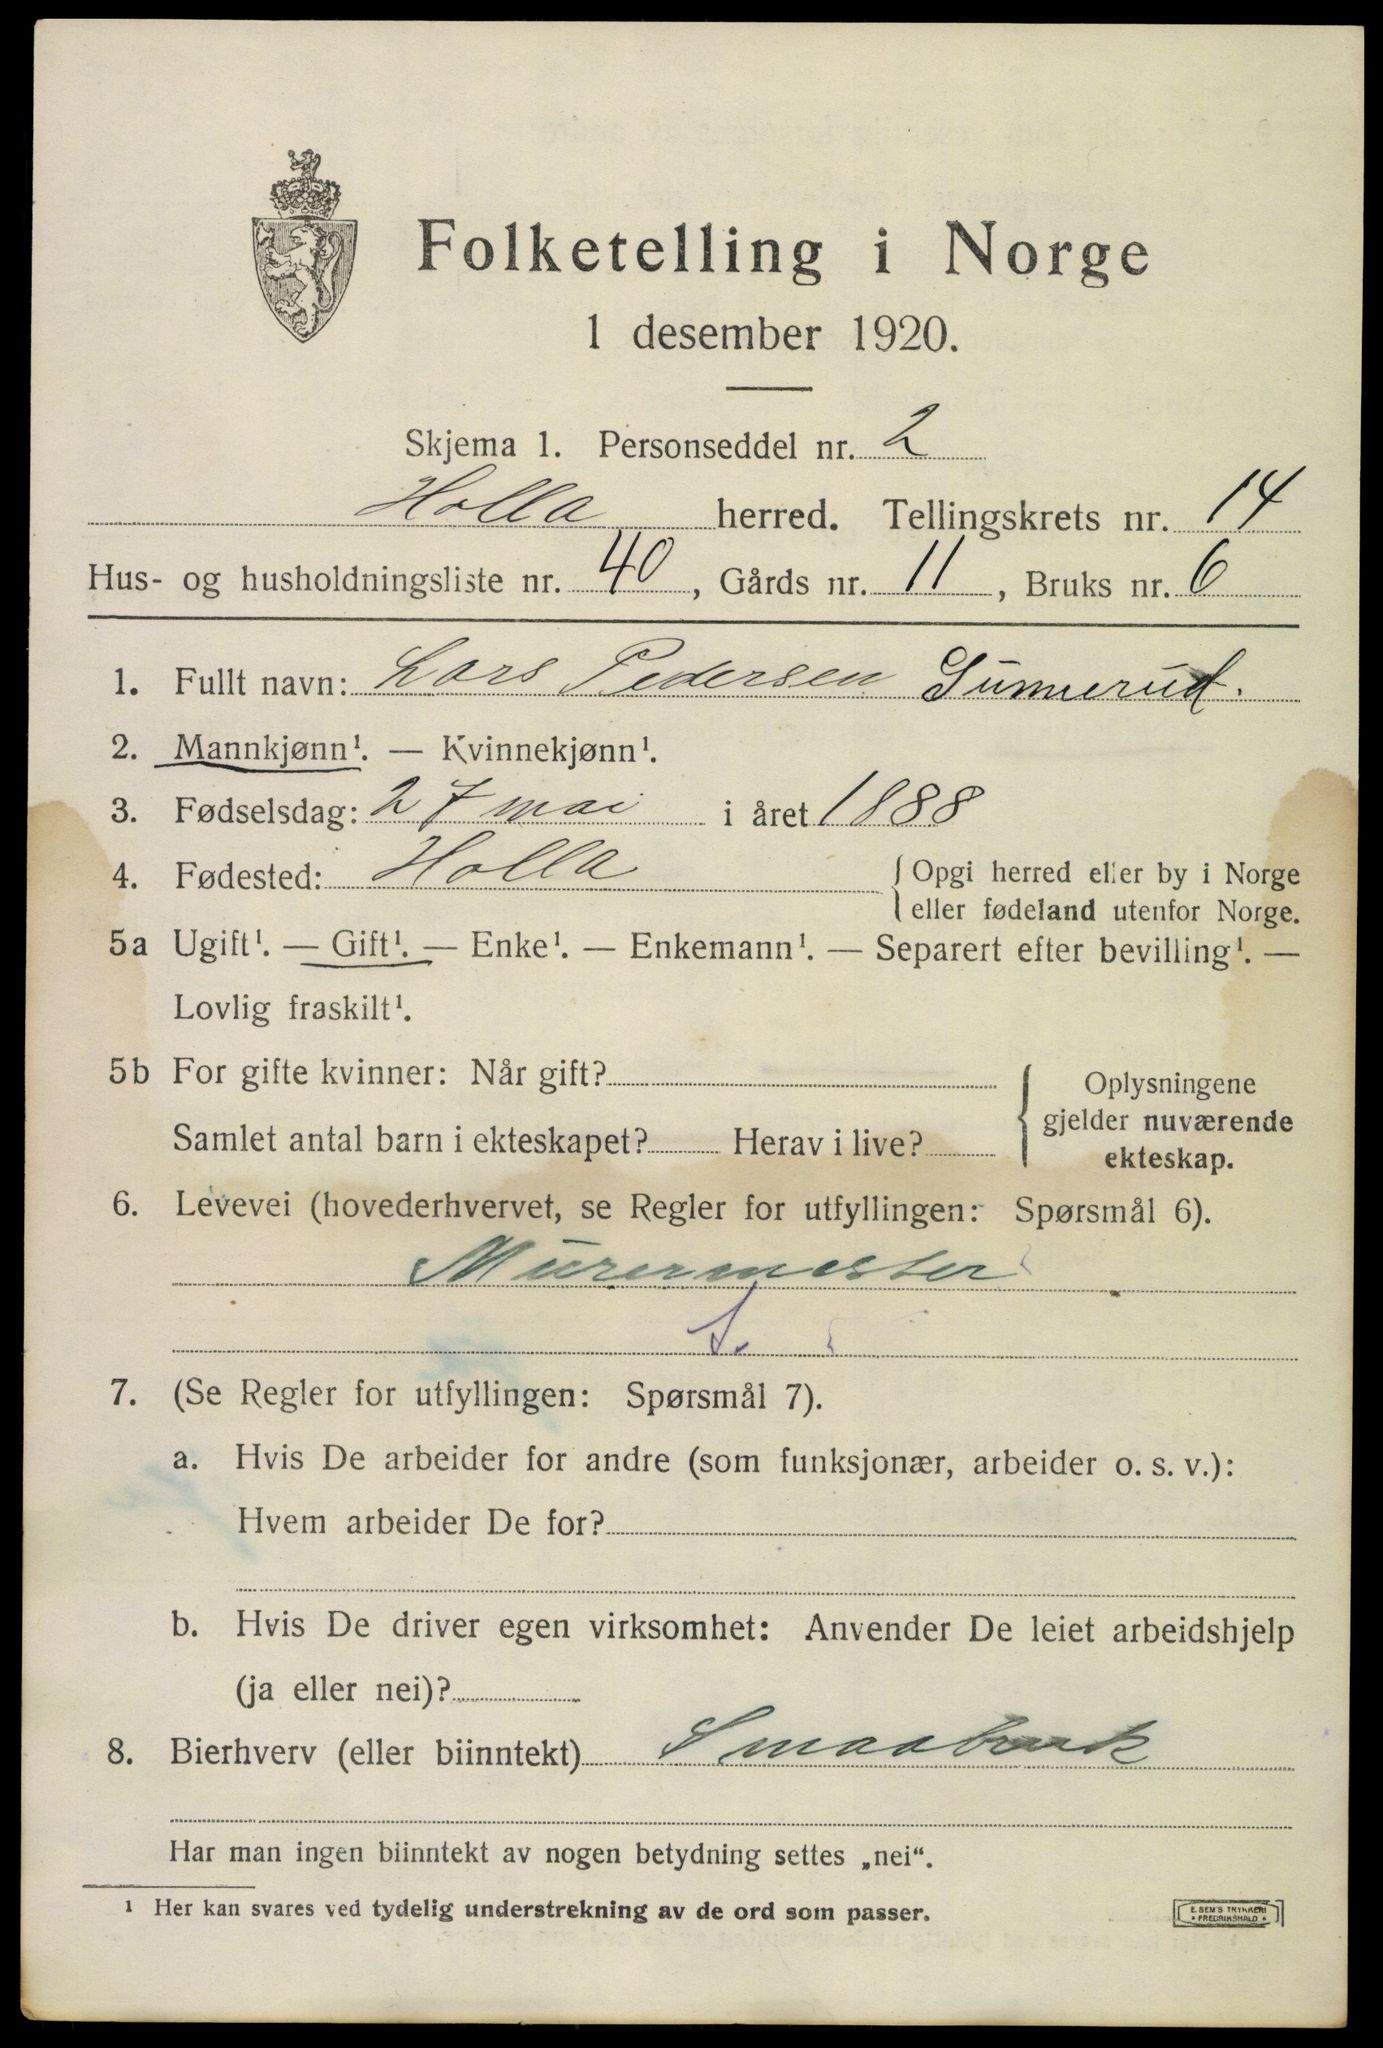 Folketelling i Norge
1 desember 1920.
Skjema 1. Personseddel nr. 2
Holla herred. Tellingskrets nr. 14
Hus- og husholdningsliste nr. 40, Gårds nr. 11, Bruks nr. 6
1. Fullt navn: Lars Pedersen Sunnerud.
2. Mannkjønn¹. — Kvinnekjønn¹.
3. Fødselsdag: 27 mai i året 1888
4. Fødested: Holla { Opgi herred eller by i Norge
eller fødeland utenfor Norge.
5a Ugift¹. — Gift¹. — Enke¹. — Enkemann¹. — Separert efter bevilling¹. —
Lovlig fraskilt¹.
5b For gifte kvinner: Når gift?
Samlet antal barn i ekteskapet? Herav i live?
{ Oplysningene
gjelder nuværende
ekteskap.
6. Levevei (hovederhvervet, se Regler for utfyllingen: Spørsmål 6).
Murermester
S.
7. (Se Regler for utfyllingen: Spørsmål 7).
a. Hvis De arbeider for andre (som funksjonær, arbeider o. s. v.):
Hvem arbeider De for?
b. Hvis De driver egen virksomhet: Anvender De leiet arbeidshjelp
(ja eller nei)?
8. Bierhverv (eller biinntekt) Smaabruk
Har man ingen biinntekt av nogen betydning settes „nei“.
¹ Her kan svares ved tydelig understrekning av de ord som passer.
E. SEM'S TRYKKERI
• FREDRIKSHALD •